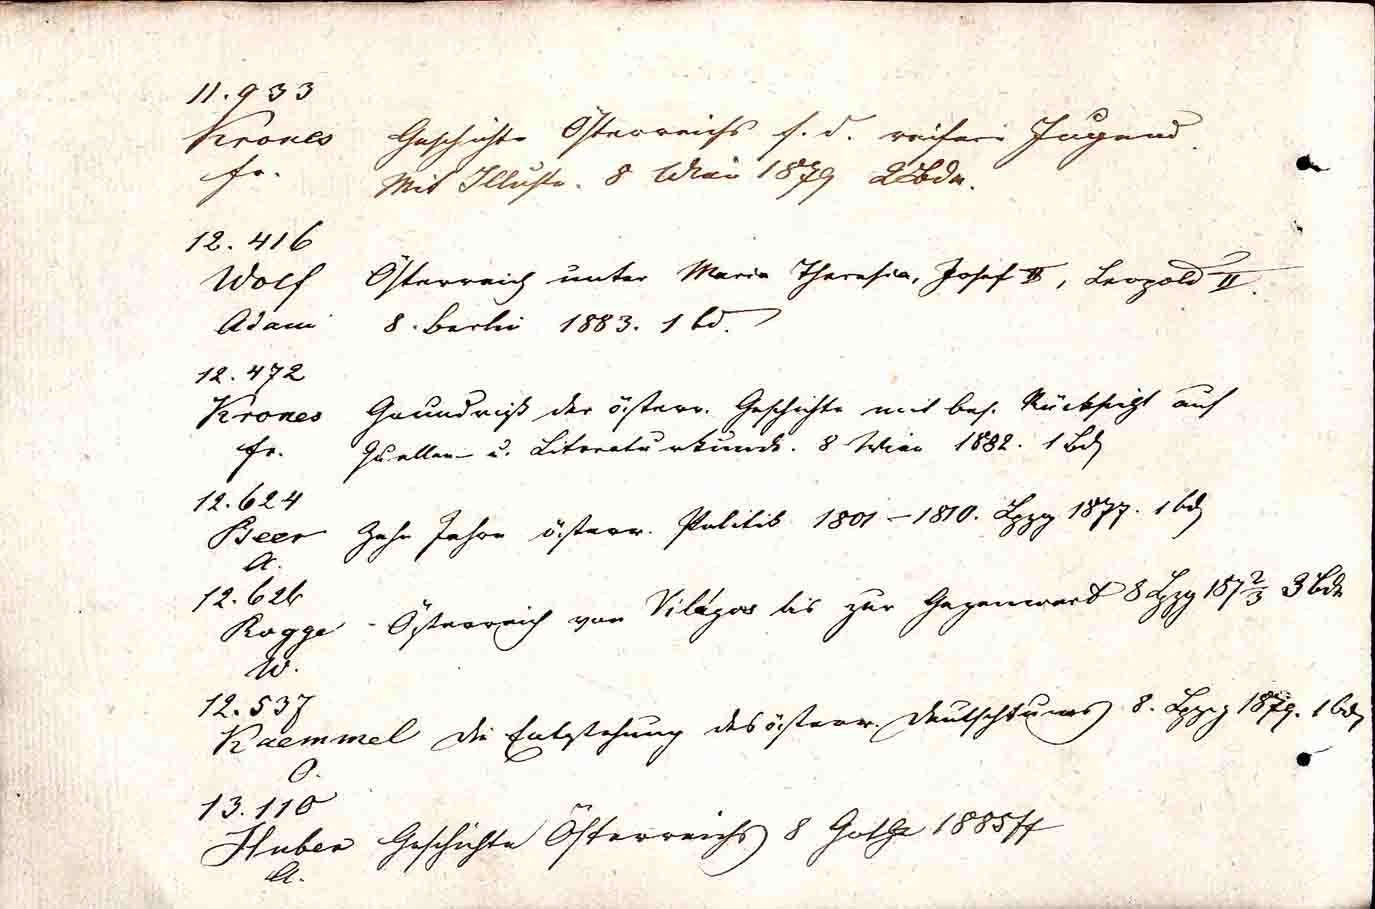 11.933
Krones Geschichte Österreichs f. d. reifere Jugend.
Fr. Mit Illustr. 8 Wien 1879 2 Bde.
12.416
Wolf Österreich unter Maria Theresia, Josef II, Leopold II.
Adam 8. Berlin 1883. 1 bd.
12.472
Krones Grundriß der österr. Geschichte mit bes. Rücksicht auf
Fr. Quellen- u. Literaturkunde. 8 Wien 1882. 1 Bd
12.624
Beer Zehn Jahre österr. Politik 1801-1810. Lpzg 1877. 1 bd
A.
12.626
Rogge - Österreich von Világos bis zur Gegenwart 8 Lpzg 187 2/3 3 Bde
W.
12.537
Kaemmel Die Entstehung des österr. Deutschtums 8. Lpzg 1879. 1 bd
O.
13.110
Huber Geschichte Österreichs 8 Gotha 1885 ff
A.